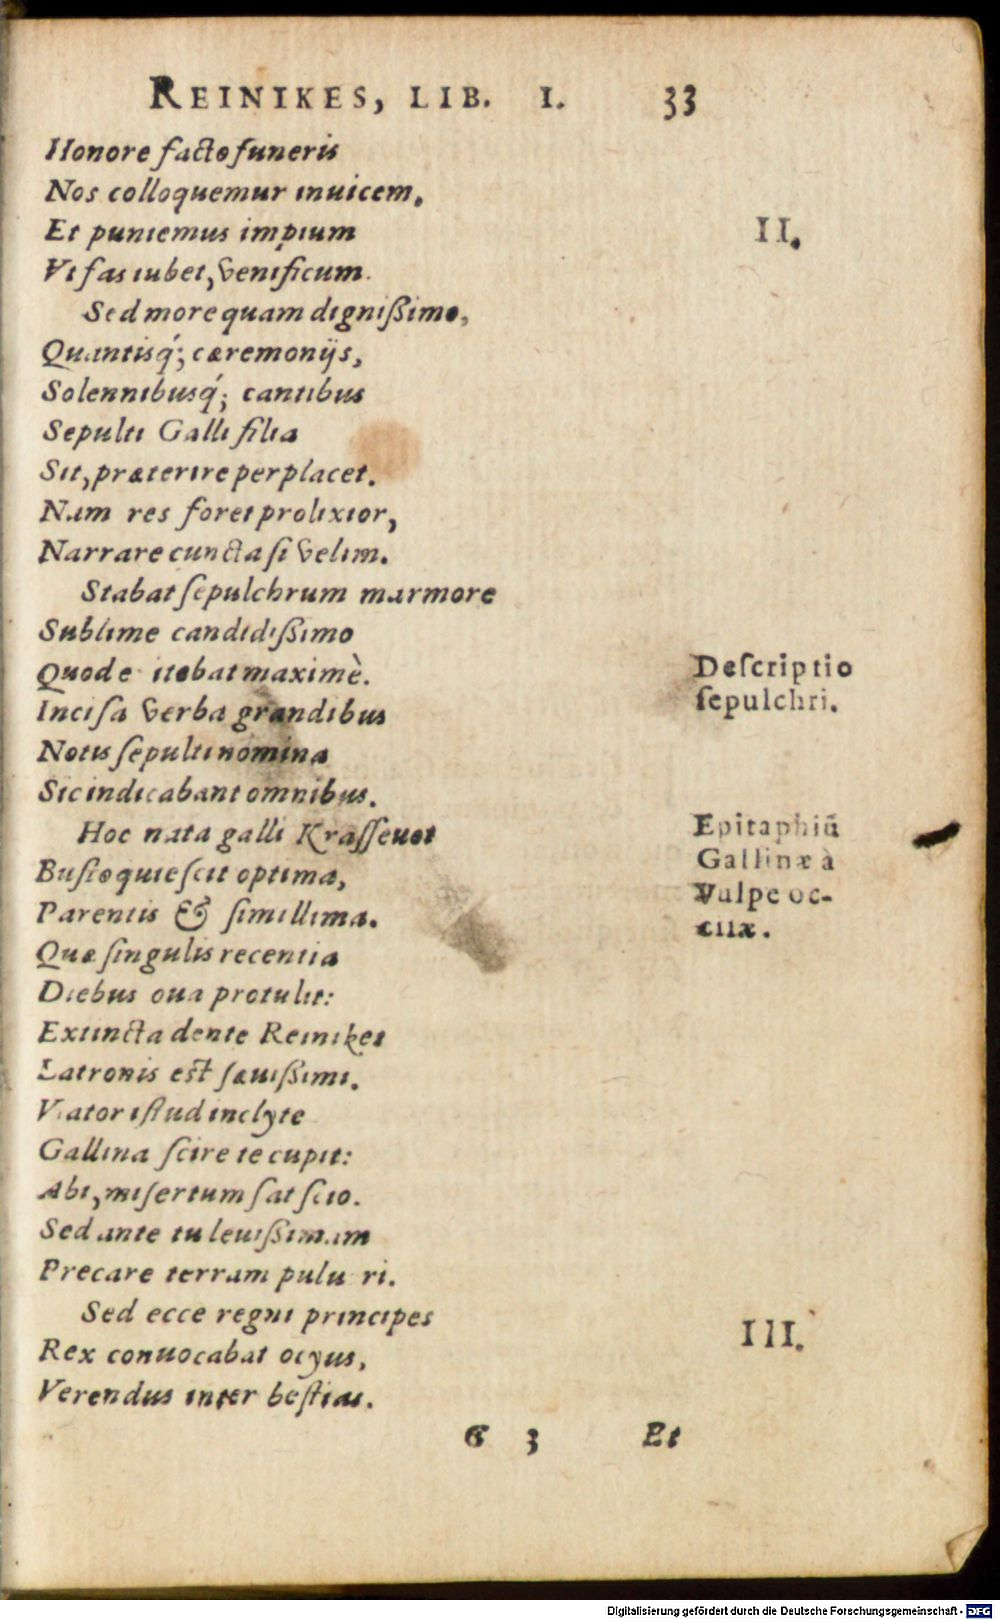 REINIKES, LIB. I. 33
Honore facto funeris
Nos colloquemur inuicem,
Et puniemus impium
II.
Vt fas iubet, venificum.
Sed more quam dignißimo,
Quantisq́; cæremonijs,
Solennibusq́; cantibus
Sepulti Galli filia
Sit, præterire perplacet.
Nam res foret prolixior,
Narrare cuncta si velim.
Stabat sepulchrum marmore
Sublime candidißimo
Quod itebat maximè.
Descriptio
sepulchri.
Incisa verba grandibus
Notis sepulti nomina
Sic indicabant omnibus.
Hoc nata galli Krasseuot
Epitaphiũ
Gallinæ à
Vulpe oc-
cisæ.
Busto quiescit optima,
Parentis & simillima.
Quæ singulis recentia
Diebus oua protulit:
Extincta dente Reinikes
Latronis est sæuißimi.
Viator istud inclyte
Gallina scire te cupit:
Abi, misertum sat scio.
Sed ante tu leuißimam
Precare terram pulu ri.
Sed ecce regni principes
III.
Rex conuocabat ocyus,
Verendus inter bestias.
C 3 Et
Digitalisierung gefördert durch die Deutsche Forschungsgemeinschaft - DFG